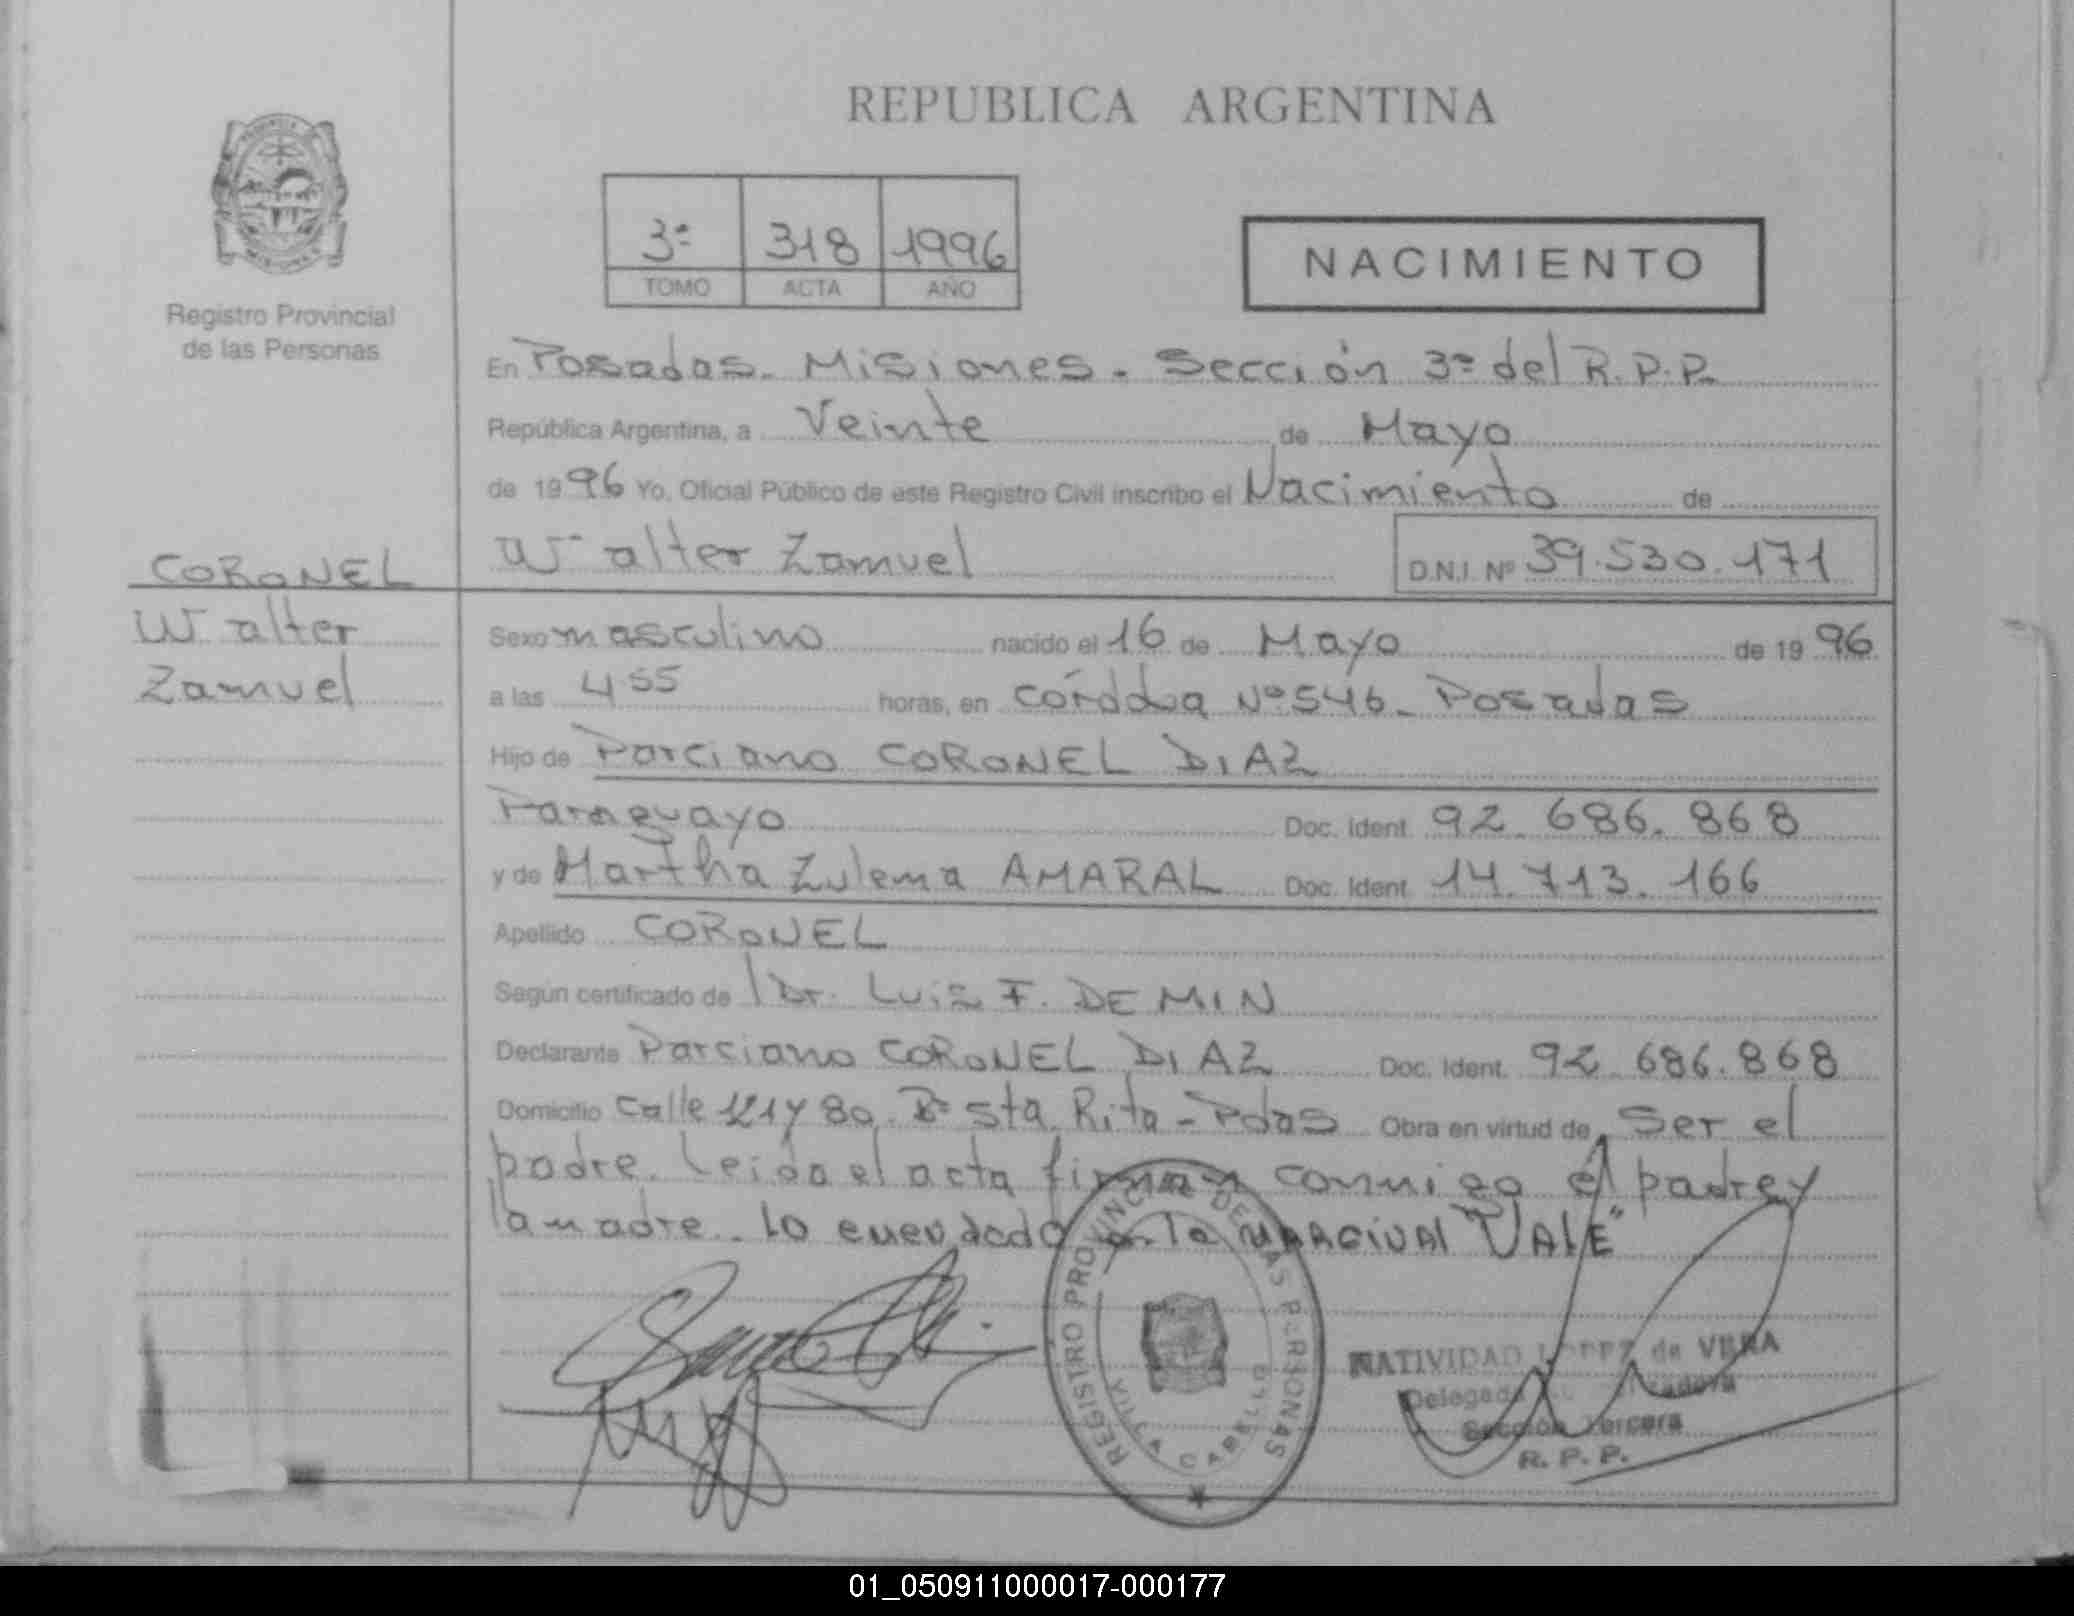 REPUBLICA ARGENTINA
3ª 318 1996
TOMO ACTA AÑO
NACIMIENTO
Registro Provincial
de las Personas
En Posadas. Misiones. Sección 3ª del R.P.P.
República Argentina, a Veinte de Mayo
de 1996 Yo. Oficial Público de este Registro Civil inscribo el Nacimiento de
Walter Zamuel D.N.I. Nº 39.530.171
CORONEL
Walter
Zamuel
Sexo masculino nacido el 16 de Mayo de 1996
a las 4.55 horas, en Córdoba Nº 546 - Posadas
Hijo de Parciano CORONEL DIAZ
Paraguayo Doc. Ident. 92.686.868
y de Martha Zulema AMARAL Doc. Ident. 14.713.166
Apellido CORONEL
Según certificado de l Dr. Luis F. DE MIN
Declarante Parciano CORONEL DIAZ Doc. Ident. 92.686.868
Domicilio Calle 121 y 80. Bº Sta. Rita - Pdas Obra en virtud de ser el
padre. Leida el acta firman conmigo el padre y
la madre. Lo enmendado en la marginal "VALE"
REGISTRO PROVINCIAL DE LAS PERSONAS
VILLA CABELLO
NATIVIDAD LOPEZ de VERA
Delegada
Sección Tercera
R. P. P.
01_050911000017-000177